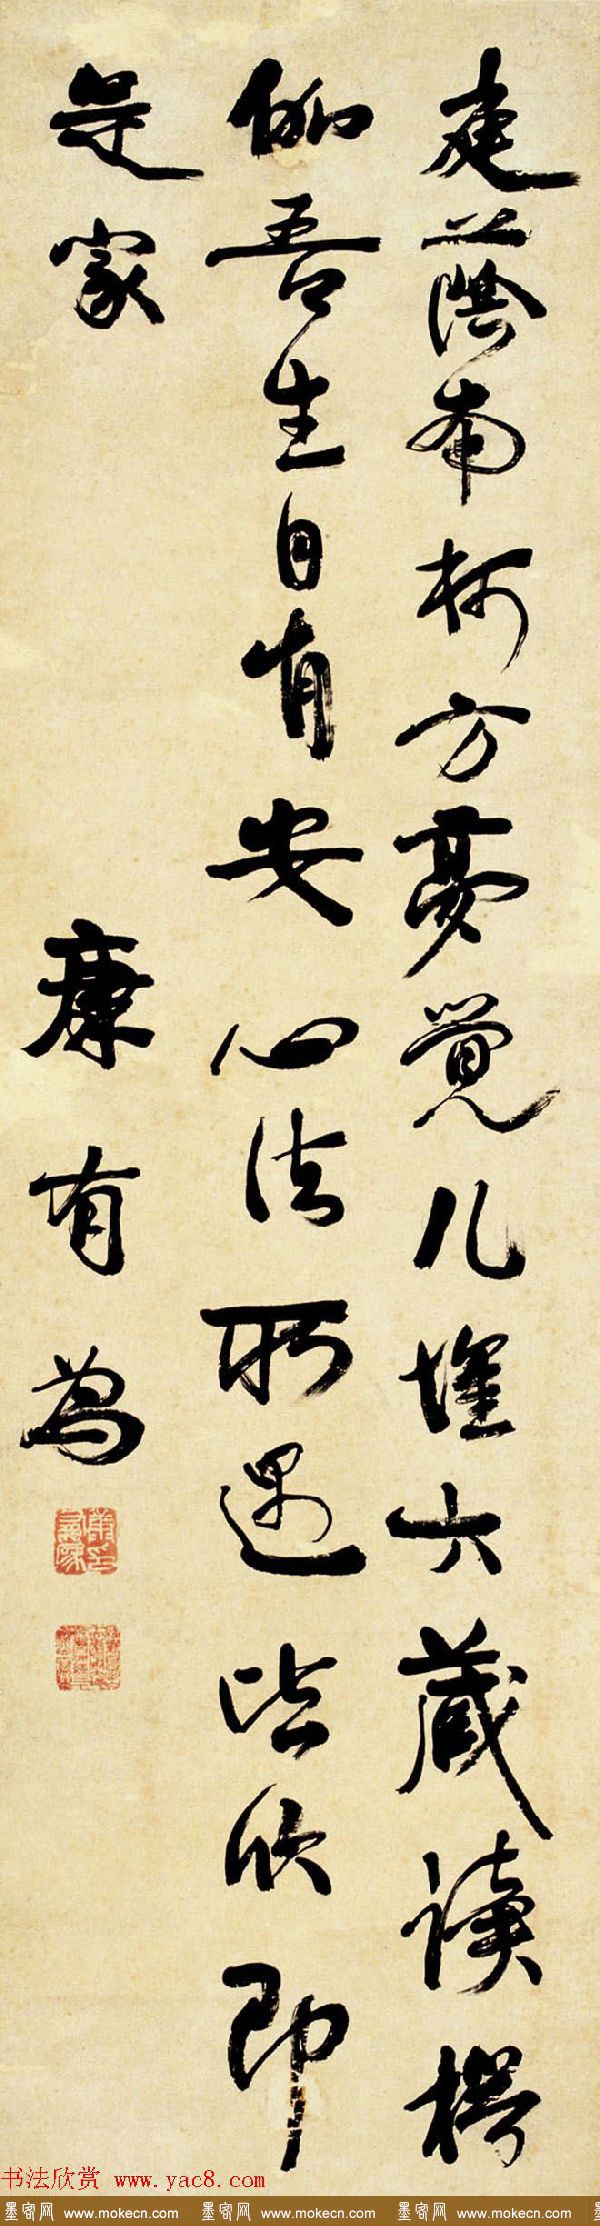 庭蔭南柯方夢覺几堆大藏讀楞
伽吾生自有安心法所遇皆欣即
是家
康有為
书法欣赏 www.yac8.com
墨客网 www.mokecn.com 墨客网 www.mokecn.com 墨客网 www.mokecn.com